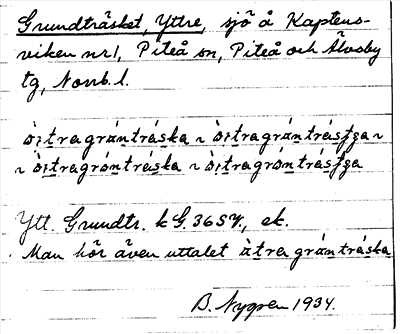 Grundträsket, Yttre, sjö å Kaptens-
viken nr 1, Piteå sn, Piteå och Älvsby
tg, Norrb. l.
òıtragrántráska ~ òıtragrántrásʃga ~
~ òıtragróntráska ~ òıtragróntrásʃga
Ytt. Grundtr. k G. 36 SV., ek.
Man hör även uttalet àtragrántráska
B. Nygren 1934.